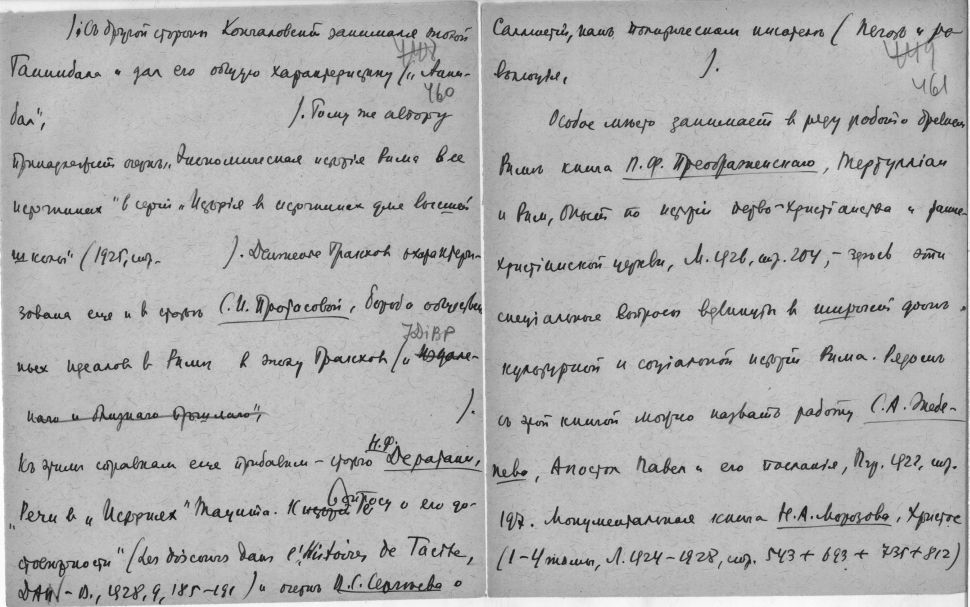 ); Съ другой стороны Кончаловский занимался эпохой
Ганнибала и дал его общую характеристику („Анни-
460
бал",                ). Тому же автору
принадлежит очерк „Экономическая исторія Рима в ее
источниках" в серіи „Исторія в источниках для высшей
школы" (1925, стр.        ). Движеніе Гракхов охарактери-
зована еще и в статье С. И. Протасовой, борьба обществен
ных идеалов в Риме в эпоху Гракхов (и Издале-
каго и близкаго прошлаго",                ).
Къ этим справкам еще прибавим – статью Н.Ф. Дератани,
„Речи в „Исторіях" Тацита. К вопросу о его до-
стоверности" (Les discours dans l'„Histoires de Tacite,
ДАН–В., 1928, 9, 185–191) и очерк В.С. Сергеева о
Саллюстий, как политическом писателе (
449
461
).
Особое место занимает в ряду работ о древнем
Риме книга П.Ф. Преображенскаго, Тертулліан
и Рим, Опыт по исторіи перво-христіанства и ранне-
христіанской церкви, М. 1926, стр. 204, – здесь эти
спеціальные вопросы вдвинуты в широкий фонъ
культурной и соціальной исторіи Рима. Рядом
съ этой книгой можно назвать работу С.А. Жебе-
лева, Апостол Павел и его посланія, Птр. 1922, стр.
197. Монументальная книга Н.А. Морозова, Христос
(1–4 томы, Л. 1924–1928, стр. 543 + 693 + 735 + 812)